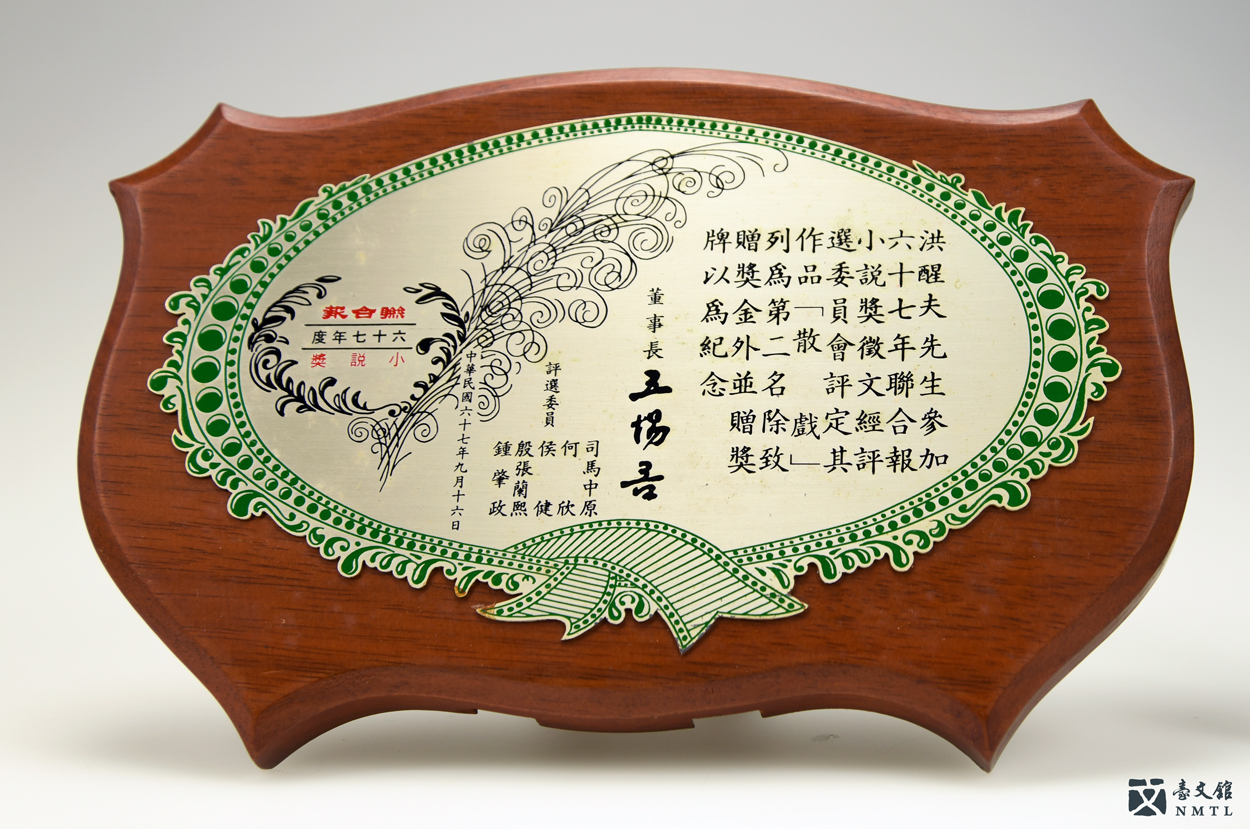 洪醒夫先生參加
六十七年聯合報
小説獎徵文經評
選委員會評定其
作品「散戲」
列爲第二名除致
贈獎金外並贈獎
牌以爲紀念
董事長 王惕吾
評選委員
司馬中原
何欣
侯健
殷張蘭熙
鍾肇政
中華民國六十七年九月十六日
聯合報
六十七年度
小説獎
臺文館
NMTL